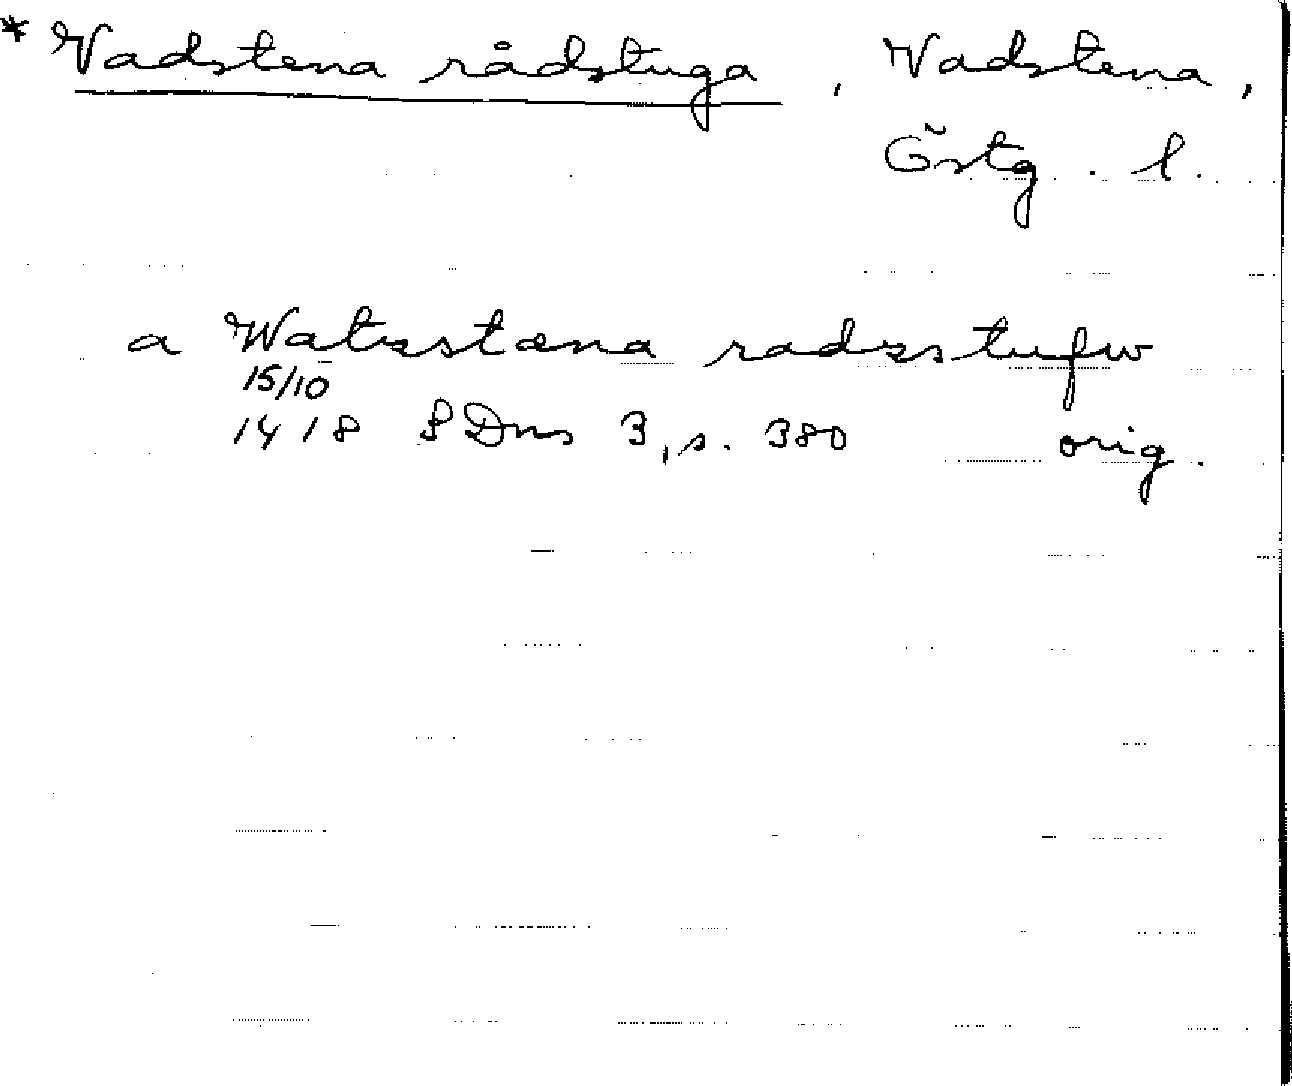 * Vadstena rådstuga, Vadstena,
Östg. l.
a Watzstæna radzstufw
15/10
1418 SDns 3, s. 380 orig.